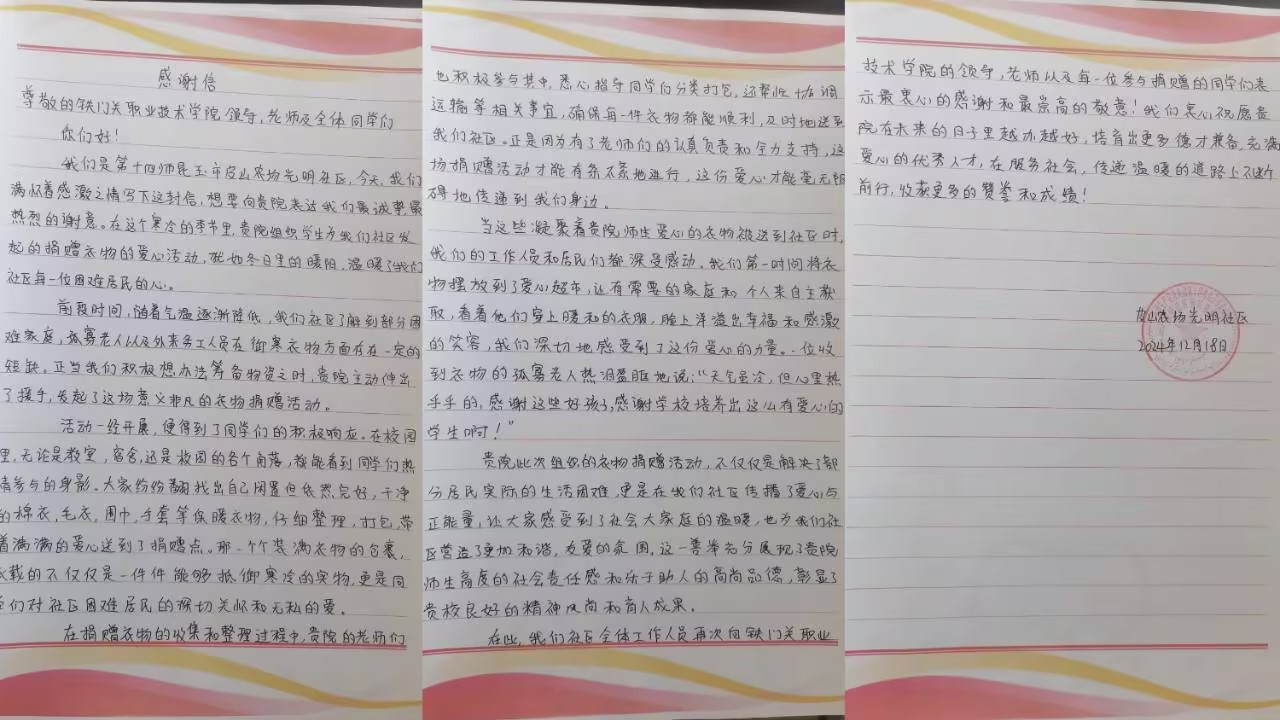 感谢信
尊敬的铁门关职业技术学院领导,老师及全体同学们
你们好!
我们是第十四师昆玉市皮山农场光明社区,今天,我们
满怀着感激之情写下这封信,想要向贵院表达我们最诚挚最
热烈的谢意。在这个寒冷的季节里,贵院组织学生为我们社区发
起的捐赠衣物的爱心活动,犹如冬日里的暖阳,温暖了我们
社区每一位困难居民的心。
前段时间,随着气温逐渐降低,我们社区了解到部分困
难家庭,孤寡老人以及外来务工人员在御寒衣物方面存在一定的
短缺。正当我们积极想办法筹备物资之时,贵院主动伸出
了援手,发起了这场意义非凡的衣物捐赠活动。
活动一经开展,便得到了同学们的积极响应。在校园
里,无论是教室,宿舍,还是校园的各个角落,都能看到同学们热
情参与的身影。大家纷纷翻找出自己闲置但依然完好,干净
的棉衣,毛衣,围巾,手套等保暖衣物,仔细整理,打包,带
着满满的爱心送到了捐赠点。那一个个装满衣物的包裹,
承载的不仅仅是一件件能够抵御寒冷的实物,更是同
学们对社区困难居民的深切关怀和无私的爱。
在捐赠衣物的收集和整理过程中,贵院的老师们
也积极参与其中,悉心指导同学们分类打包,还帮忙协调
运输等相关事宜,确保每一件衣物都能顺利,及时地送到
我们社区。正是因为有了老师们的认真负责和全力支持,这
场捐赠活动才能有条不紊地进行,这份爱心才能毫无阻
碍地传递到我们身边。
当这些凝聚着贵院师生爱心的衣物被送到社区时,
我们的工作人员和居民们都深受感动。我们第一时间将衣
物摆放到了爱心超市,让有需要的家庭和个人来自主获
取,看着他们穿上暖和的衣服,脸上洋溢出幸福和感激
的笑容,我们深切地感受到了这份爱心的力量。一位收
到衣物的孤寡老人热泪盈眶地说:“天气虽冷,但心里热
乎乎的,感谢这些好孩子,感谢学校培养出这么有爱心的
学生啊!”
贵院此次组织的衣物捐赠活动,不仅仅是解决了部
分居民实际的生活困难,更是在我们社区传播了爱心与
正能量,让大家感受到了社会大家庭的温暖,也为我们社
区营造了更加和谐,友爱的氛围,这一善举充分展现了贵院
师生高度的社会责任感和乐于助人的高尚品德,彰显了
贵校良好的精神风尚和育人成果。
在此,我们社区全体工作人员再次向铁门关职业
技术学院的领导,老师以及每一位参与捐赠的同学们表
示最衷心的感谢和最崇高的敬意!我们衷心祝愿贵
院在未来的日子里越办越好,培育出更多德才兼备,充满
爱心的优秀人才,在服务社会,传递温暖的道路上不断
前行,收获更多的赞誉和成绩!
皮山农场光明社区
2024年12月18日